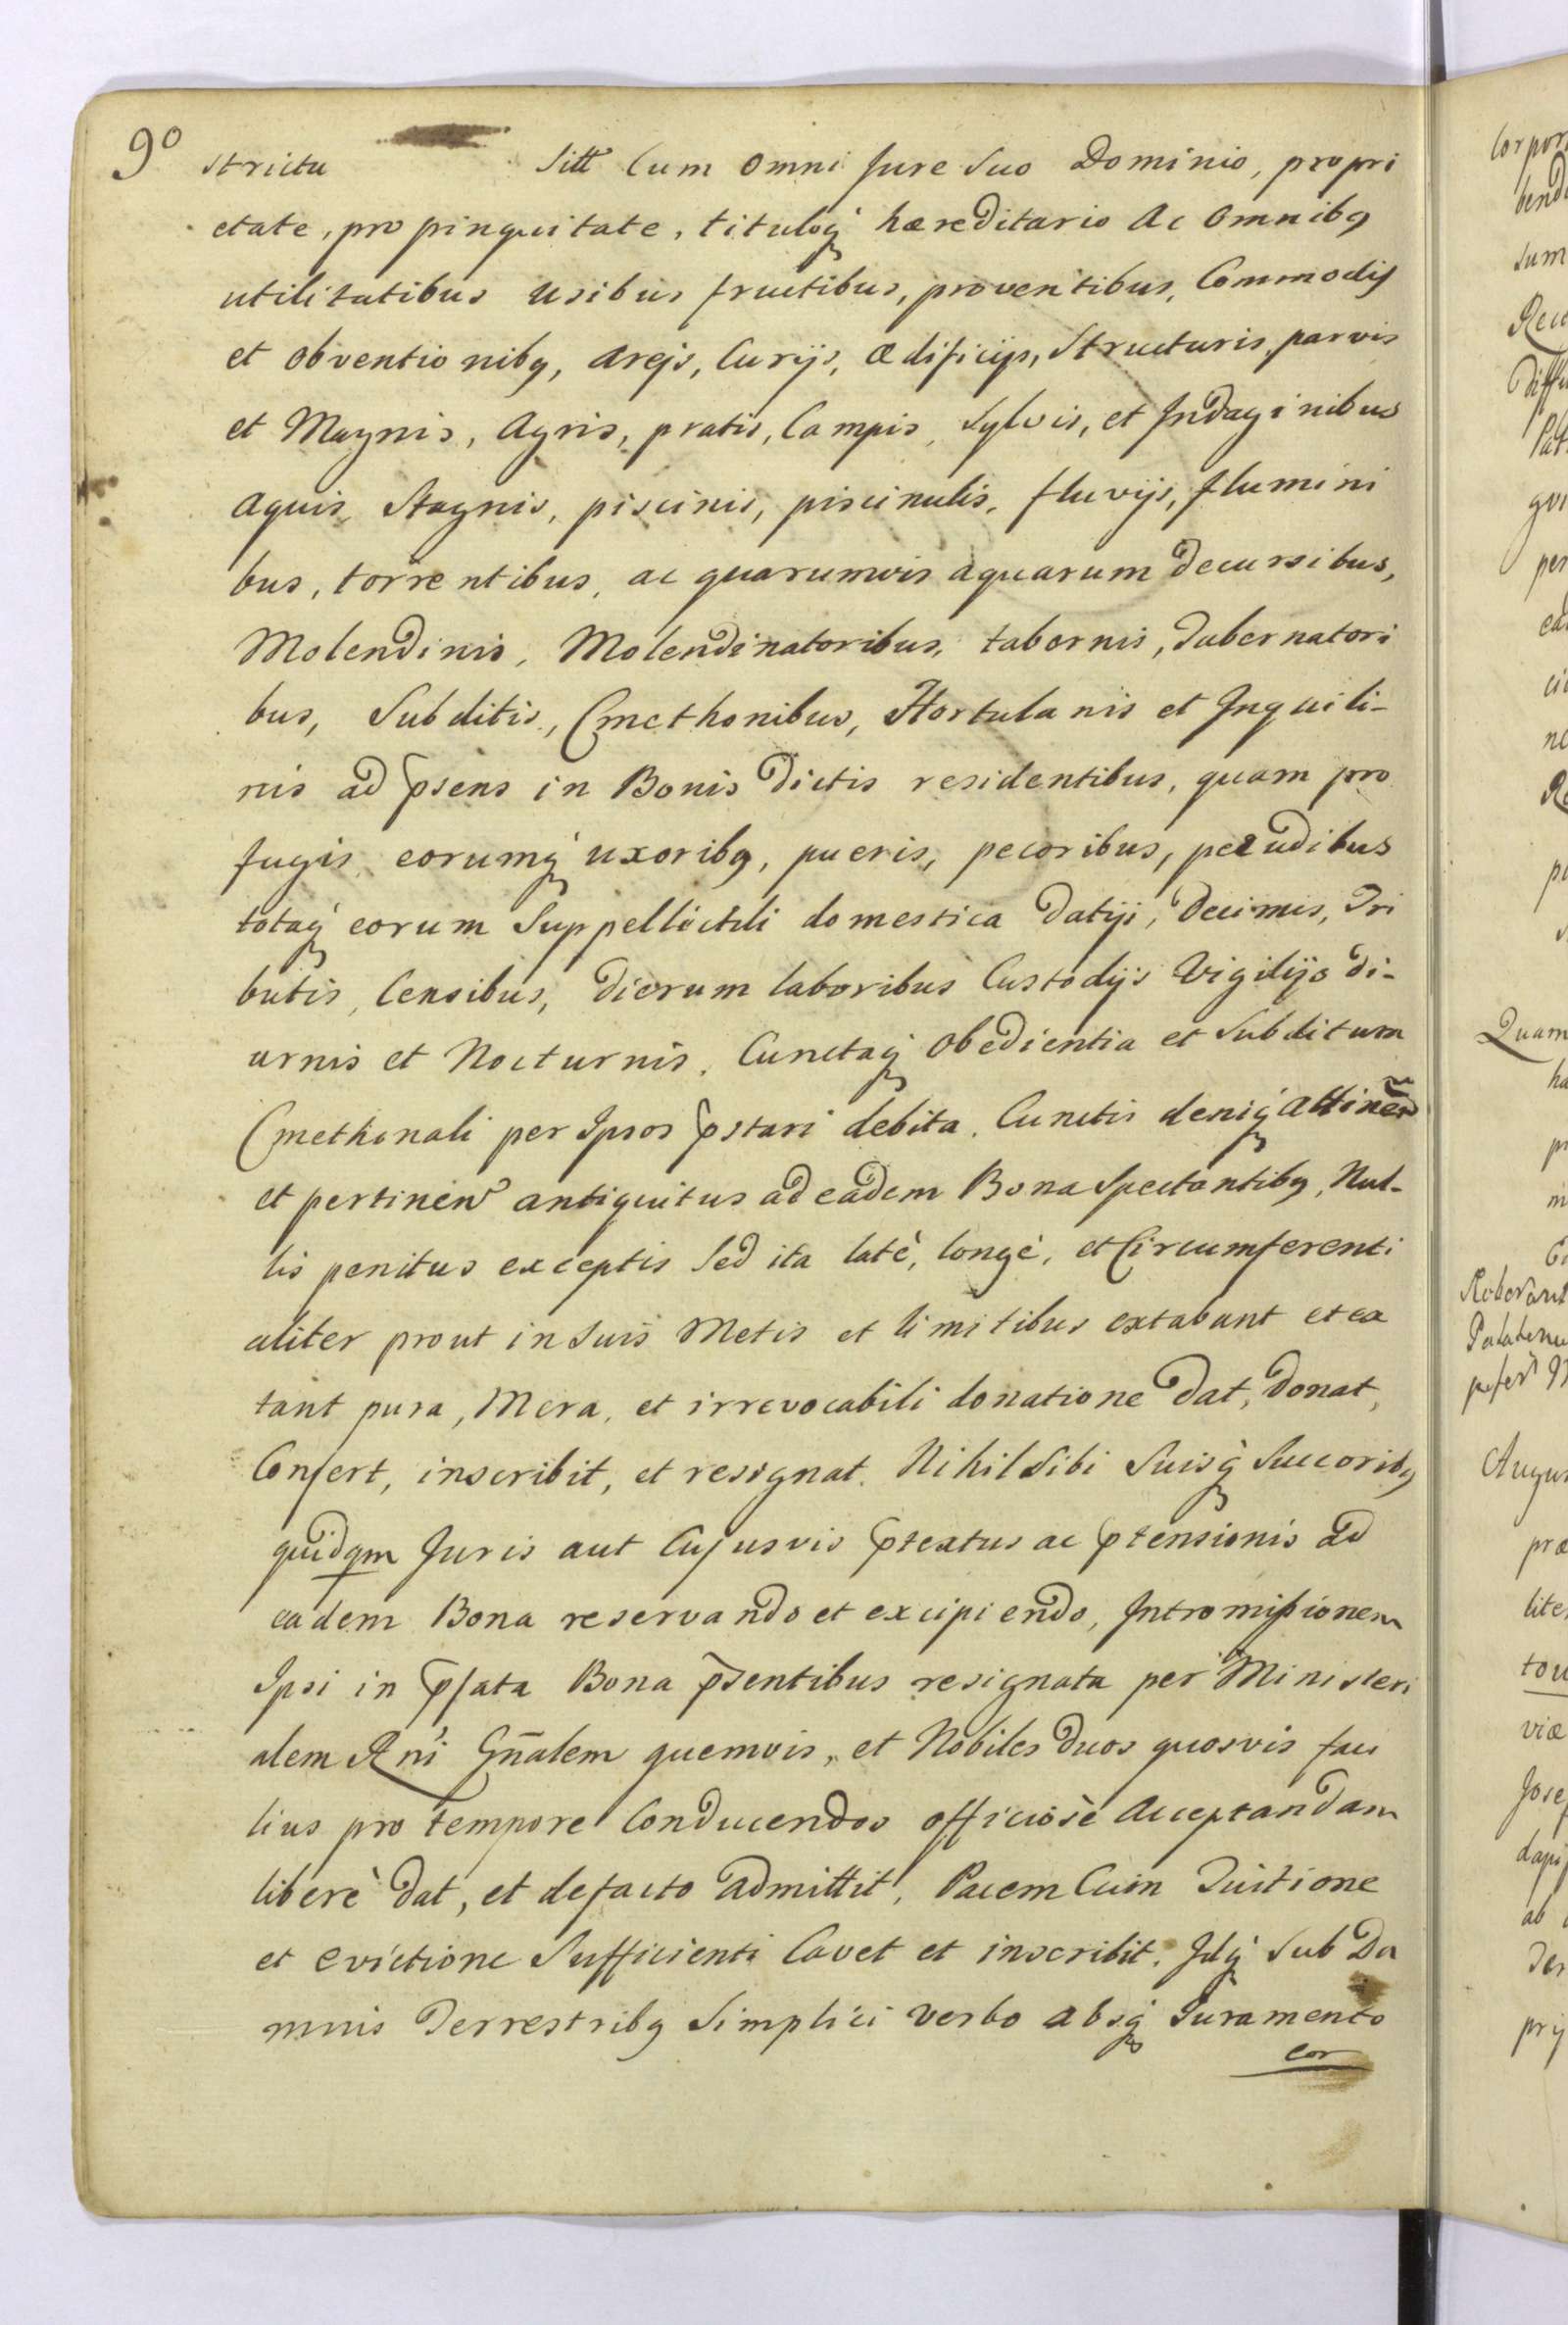 9º strictu Sitt Cum omni Jure Suo Dominio, propri
etate, propinquitate, tituloq́ hæreditario Ac omnibq
utilitatibus usibus fructibus, proventibus, Commodis
et obventionibq, Arejs, Curijs, ædificijs, Structuris, parvis
et Magnis, Agris, pratis, Campis, Sylvis, et Indaginibus
Aquis, Stagnis, piscinis, piscinulis, fluvijs, flumini
bus, torrentibus, ac quarumvis aquarum decursibus,
Molendinis, Molendinatoribus, tabernis, Tabernatori
bus, Subditis, Cmethonibus, Hortulanis et Inquili-
nis ad p̃sens in Bonis dictis residentibus, quam pro
fugis, eorumq́ uxoribq, pueris, pecoribus, pecudibus
totaq́ eorum Suppellectili domestica datijs, Decimis, Tri
butis, Censibus, dierum laboribus Custodijs Vigilijs di-
urnis et Nocturnis. Cunctaq́ obedientia et Subditura
Cmethonali per Ipsos p̃stari debita. Cunctis deniq́ attinẽn
et pertineñ antiquitus ad eadem Bona Spectantibq, Nul-
lis penitus exceptis Sed ita latè, longè, et Circumferenti
aliter prout in Suis Metis et limitibus extabant et ex
tant pura, Mera, et irrevocabili donatione dat, donat,
Confert, inscribit, et resignat. Nihil Sibi Suisq́ Succoribq
quidqm Juris aut Cujusvis p̃textus ac p̃tensionis ad
eadem Bona reservando et excipiendo, Intromissionem
Ipsi in p̃fata Bona p̃sentibus resignata per Ministeri
alem Rñi Gñalem quemvis, et Nobiles duos quosvis faci
lius pro tempore Conducendos officiosè Acceptandam
liberè dat, et defacto admittit, Pacem Cum Tuitione
et evictione Sufficienti Cavet et inscribit. Idq́ Sub Da
mnis Terrestribq Simplici verbo absq́ Juramento
cor